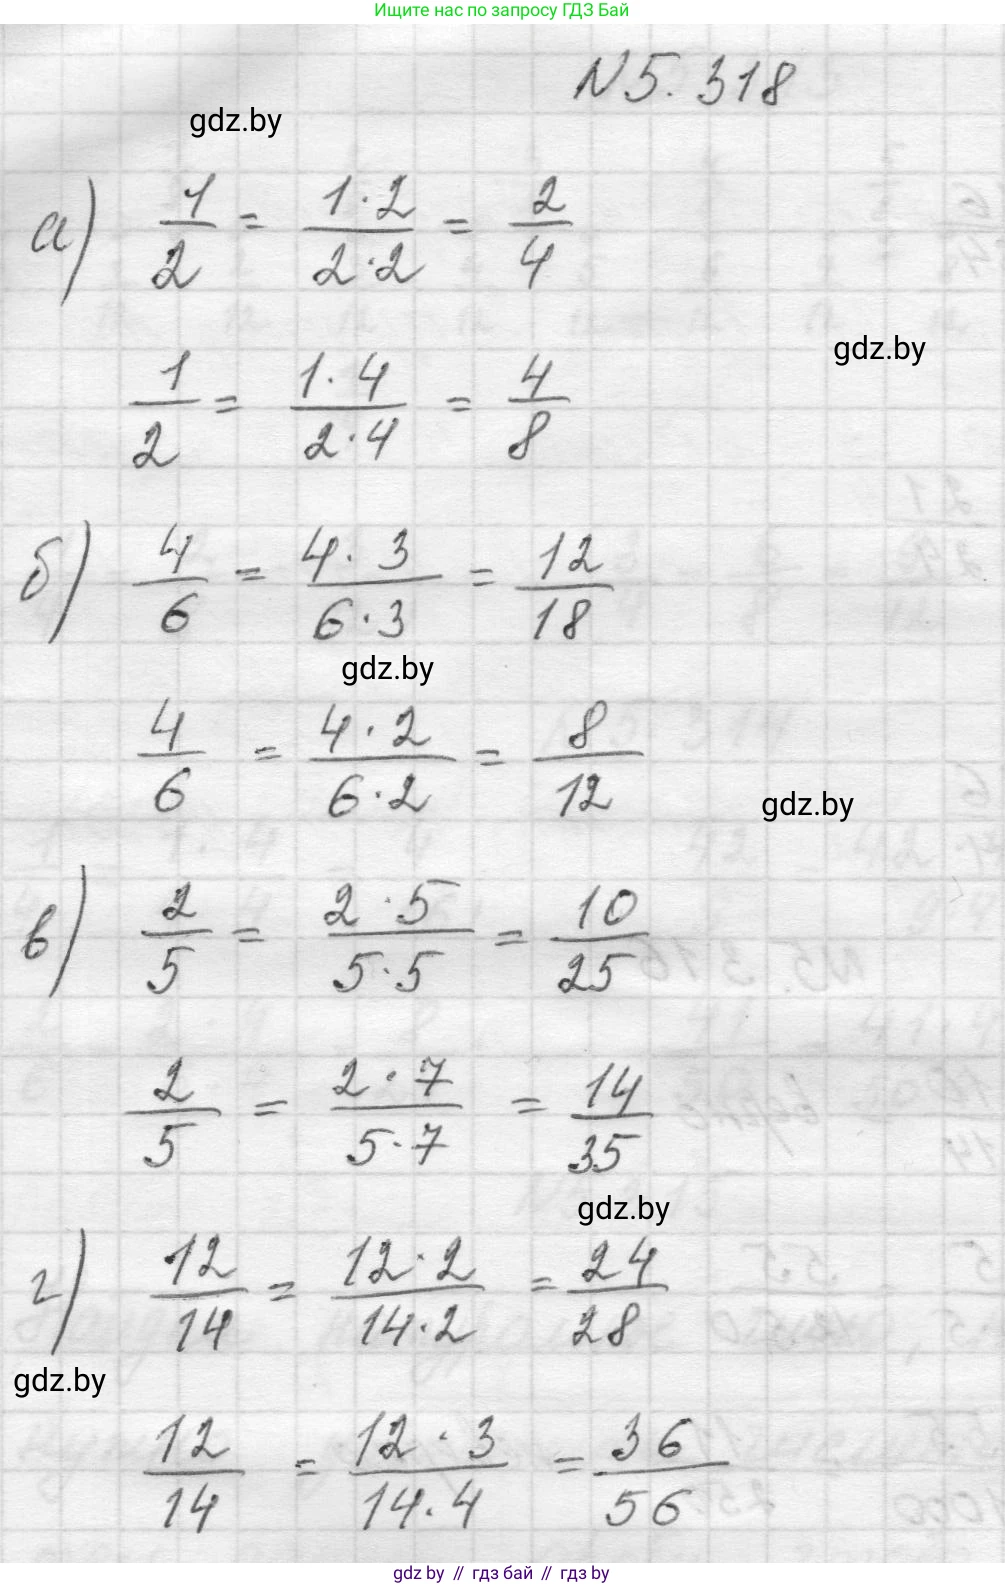 Ищите нас по запросу ГДЗ Бай
N5.318
gdz.by
а) 1/2 = 1·2/2·2 = 2/4
gdz.by
1/2 = 1·4/2·4 = 4/8
б) 4/6 = 4·3/6·3 = 12/18
gdz.by
4/6 = 4·2/6·2 = 8/12
gdz.by
в) 2/5 = 2·5/5·5 = 10/25
2/5 = 2·7/5·7 = 14/35
gdz.by
г) 12/14 = 12·2/14·2 = 24/28
gdz.by
12/14 = 12·3/14·4 = 36/56
gdz.by // гдз бай // gdz.by